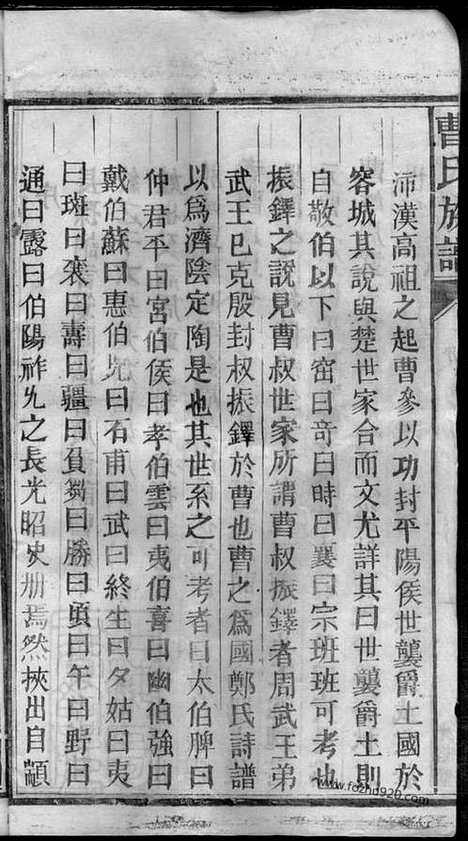 曹氏族譜
沛漢高祖之起曹參以功封平陽侯世襲爵土國於
容城其說與楚世家合而文尤詳其曰世襲爵土則
自敬伯以下曰窋曰奇曰時曰襄曰宗班班可考也
振鐸之說見曹叔世家所謂曹叔振鐸者周武王弟
武王已克殷封叔振鐸於曹也曹之為國鄭氏詩譜
以為濟陰定陶是也其世系之可考者曰太伯脾曰
仲君平曰宮伯侯曰孝伯雲曰夷伯喜曰幽伯強曰
戴伯蘇曰惠伯兕曰石甫曰武曰終生曰夕姑曰夷
曰班曰襄曰壽曰疆曰負芻曰勝曰頃曰午曰野曰
通曰露曰伯陽祚允之長光昭史册焉然挾出自顓
www.fozhd920.com